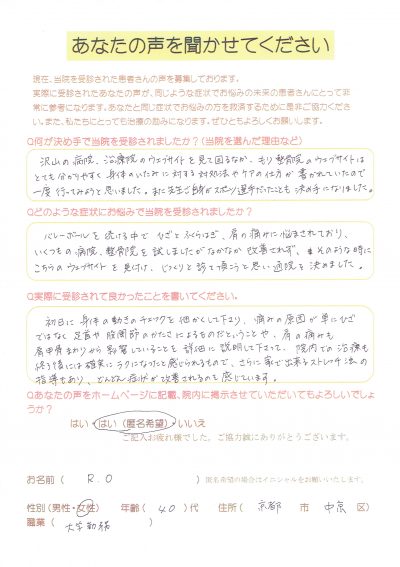 あなたの声を聞かせてください
現在、当院を受診された患者さんの声を募集しております。
実際に受診されたあなたの声が、同じような症状でお悩みの未来の患者さんにとって非
常に参考になります。あなたと同じ症状でお悩みの方を救済するために是非ご協力くださ
い。また、私たちにとっても治療の励みになります。ぜひともよろしくお願いします。
Q何が決め手で当院を受診されましたか？(当院を選んだ理由など)
沢山の病院、治療院のウェブサイトを見て回るなか、もり整骨院のウェブサイトは
とても分かりやすく身体のいたみに対する対処法やケアの仕方が書かれていたので
一度行ってみようと思いました。また先生ご自身がスポーツ選手だったことも決め手になりました。
Qどのような症状にお悩みで当院を受診されましたか？
バレーボールを続ける中でひざとふくらはぎ、肩の痛みに悩まされており、
いくつもの病院、整骨院を試しましたがなかなか改善されず、そのような時に
こちらのウェブサイトを見付け、じっくりと診て貰おうと思い通院を決めました。
Q実際に受診されて良かったことを書いてください。
初日に身体の動きのチェックを細かくして下さり、痛みの原因が単にひざ
ではなく足首や股関節のかたさによるものだということや、肩の痛みも
肩甲骨まわりから影響していることを詳細に説明して下さって、院内での治療も
帰る頃には確実にラクになったと感じられるもので、さらに家で出来るストレッチ法の
指導もあり、どんどん症状が改善されるのを感じています。
Qあなたの声をホームページに記載、院内に掲示させていただいてもよろしいでしょ
うか？
はい・はい（匿名希望）・いいえ
ご記入お疲れ様でした。ご協力誠にありがとうございます。
お名前（ R.O ）匿名希望の場合はイニシャルをお願いいたします。
性別(男性・女性) 年齢（40）代 住所（京都 市 中京 区）
職業（大学勤務）